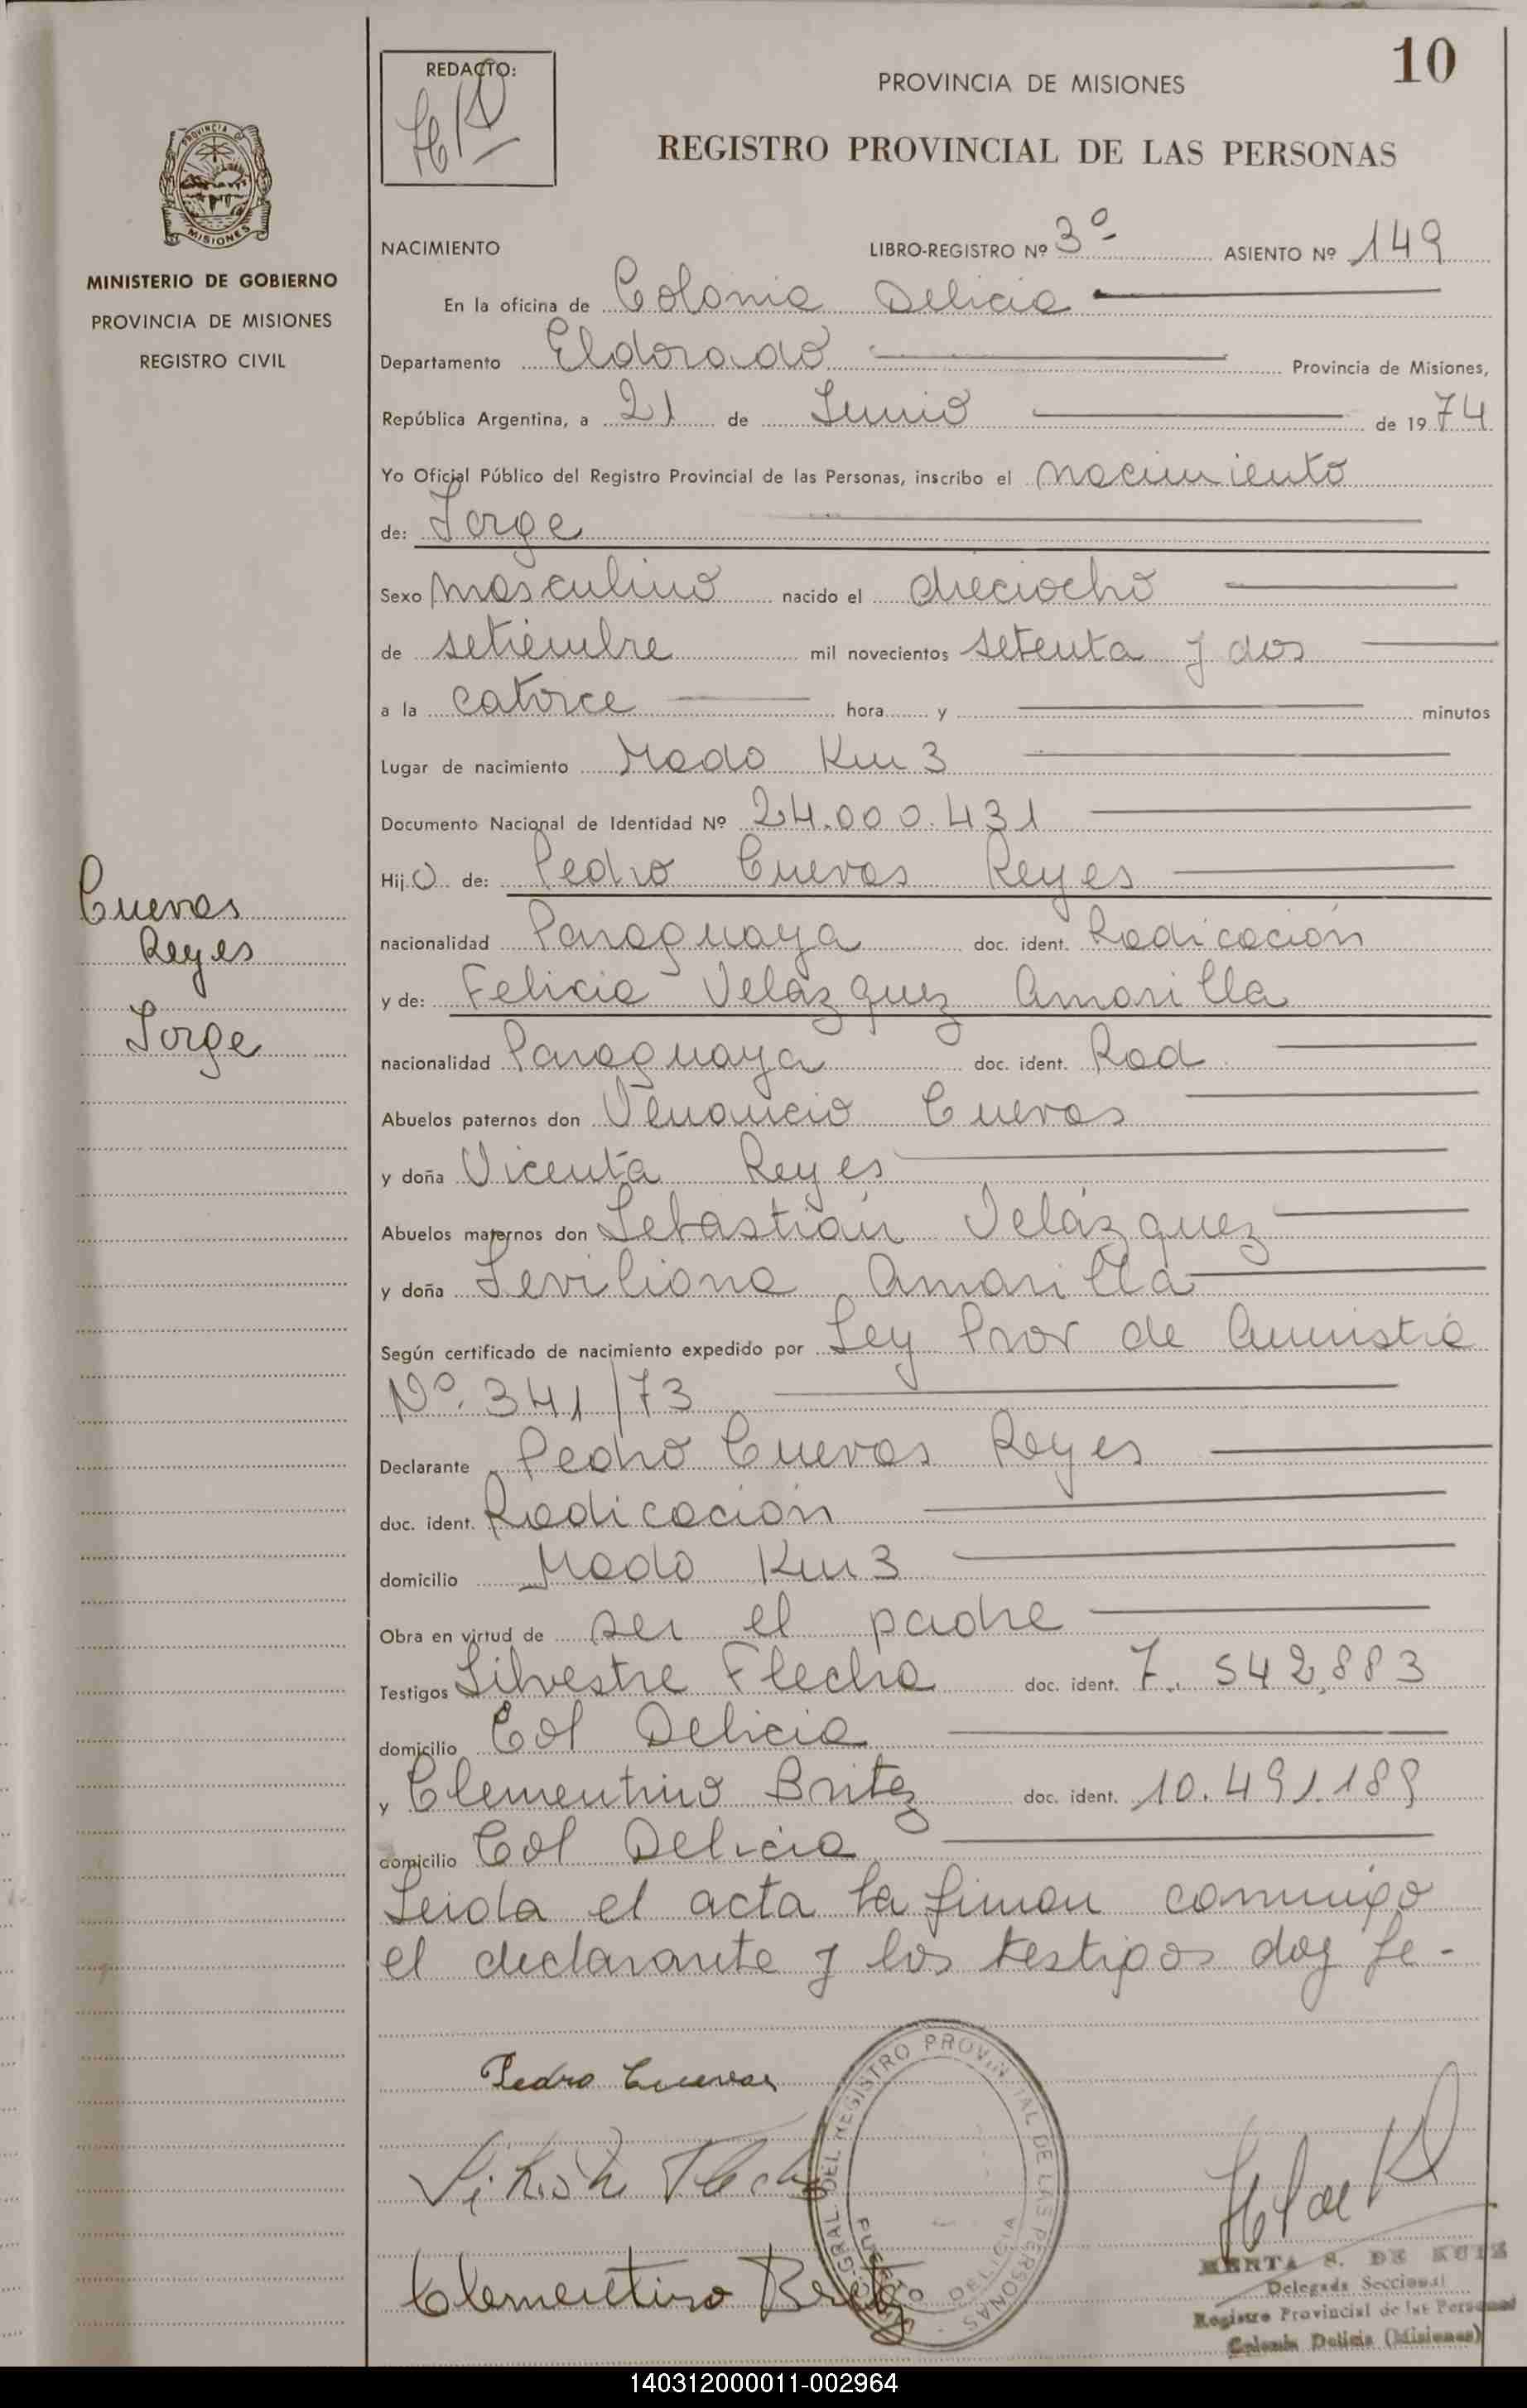 10
REDACTO:
PROVINCIA DE MISIONES
REGISTRO PROVINCIAL DE LAS PERSONAS
PROVINCIA DE
MISIONES
MINISTERIO DE GOBIERNO
PROVINCIA DE MISIONES
REGISTRO CIVIL
Cuevas
Reyes
Jorge
NACIMIENTO LIBRO-REGISTRO Nº 3º ASIENTO Nº 149
En la oficina de Colonia Delicia
Departamento Eldorado Provincia de Misiones,
República Argentina, a 21 de Junio de 1974
Yo Oficial Público del Registro Provincial de las Personas, inscribo el nacimiento
de: Jorge
Sexo masculino nacido el dieciocho
de setiembre mil novecientos setenta y dos
a la catorce hora y minutos
Lugar de nacimiento Mado Km 3
Documento Nacional de Identidad Nº 24.000.431
Hijo de: Pedro Cuevas Reyes
nacionalidad Paraguaya doc. ident. Radicación
y de: Felicia Velázquez Amarilla
nacionalidad Paraguaya doc. ident. Rad.
Abuelos paternos don Venancio Cuevas
y doña Vicenta Reyes
Abuelos maternos don Sebastián Velázquez
y doña Seviliana Amarilla
Según certificado de nacimiento expedido por Ley Prov de Amnistia
Nº. 341/73
Declarante Pedro Cuevas Reyes
doc. ident. Radicación
domicilio Mado Km 3
Obra en virtud de ser el padre
Testigos Silvestre Flecha doc. ident. 7.542,883
domicilio Col Delicia
y Clementino Britez doc. ident. 10.491.189
domicilio Col Delicia
Leida el acta la firman conmigo
el declarante y los testigos doy fe-
Pedro Cuevas
Clementino Britez
GRAL DEL REGISTRO PROVINCIAL DE LAS PERSONAS
DELICIA
MERTA S. DE RUIZ
Delegada Seccional
Registro Provincial de las Personas
Colonia Delicia (Misiones)
140312000011-002964